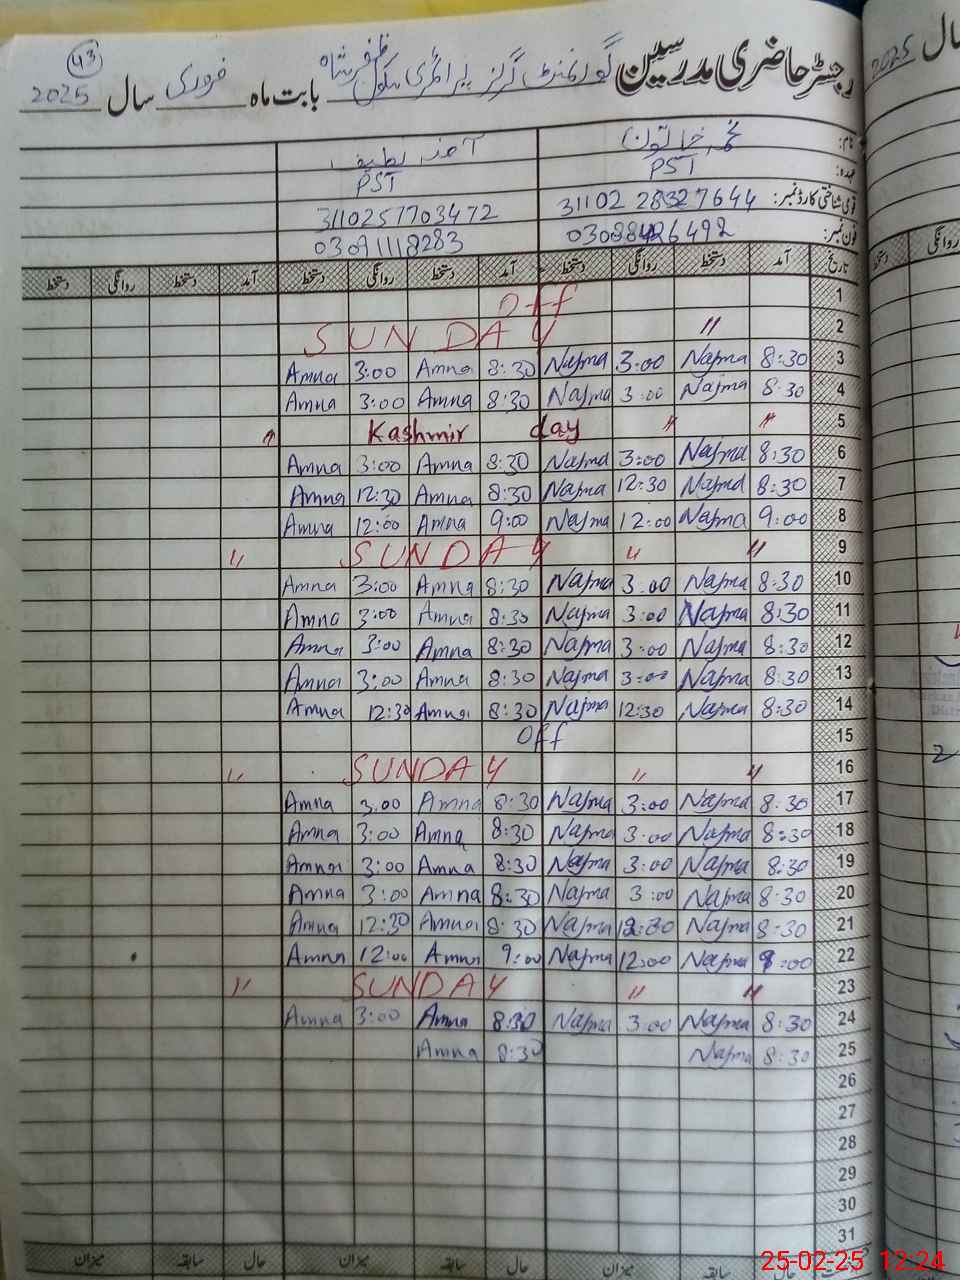 43
رجسٹر حاضری مدرسین گورنمنٹ گرلز پرائمری سکول ظفر شاہ بابت ماہ فروری سال 2025
نام: نجمہ خاتون آمنہ لطیف
عہدہ: PST PST
قومی شناختی کارڈ نمبر: 31102 28327644 3110257703472
فون نمبر: 03091118283
تاریخ آمد دستخط روانگی دستخط آمد دستخط روانگی دستخط آمد دستخط روانگی دستخط
1 off
2 " SUNDAY
3 8:30 Najma 3:00 Najma 8:30 Amna 3:00 Amna
4 8:30 Najma 3:00 Najma 8:30 Amna 3:00 Amna
5 " " Kashmir day "
6 8:30 Najma 3:00 Najma 8:30 Amna 3:00 Amna
7 8:30 Najma 12:30 Najma 8:30 Amna 12:30 Amna
8 9:00 Najma 12:00 Najma 9:00 Amna 12:00 Amna
9 " " SUNDAY "
10 8:30 Najma 3:00 Najma 8:30 Amna 3:00 Amna
11 8:30 Najma 3:00 Najma 8:30 Amna 3:00 Amna
12 8:30 Najma 3:00 Najma 8:30 Amna 3:00 Amna
13 8:30 Najma 3:00 Najma 8:30 Amna 3:00 Amna
14 8:30 Najma 12:30 Najma 8:30 Amna 12:30 Amna
15 off
16 " " SUNDAY "
17 8:30 Najma 3:00 Najma 8:30 Amna 3:00 Amna
18 8:30 Najma 3:00 Najma 8:30 Amna 3:00 Amna
19 8:30 Najma 3:00 Najma 8:30 Amna 3:00 Amna
20 8:30 Najma 3:00 Najma 8:30 Amna 3:00 Amna
21 8:30 Najma 12:30 Najma 8:30 Amna 12:30 Amna
22 9:00 Najma 12:00 Najma 9:00 Amna 12:00 Amna
23 " " SUNDAY "
24 8:30 Najma 3:00 Najma 8:30 Amna 3:00 Amna
25 8:30 Najma 8:30 Amna
26
27
28
29
30
31
حال سابقہ میزان حال سابقہ میزان حال سابقہ میزان
سال 2025
روانگی دستخط
25-02-25 12:24